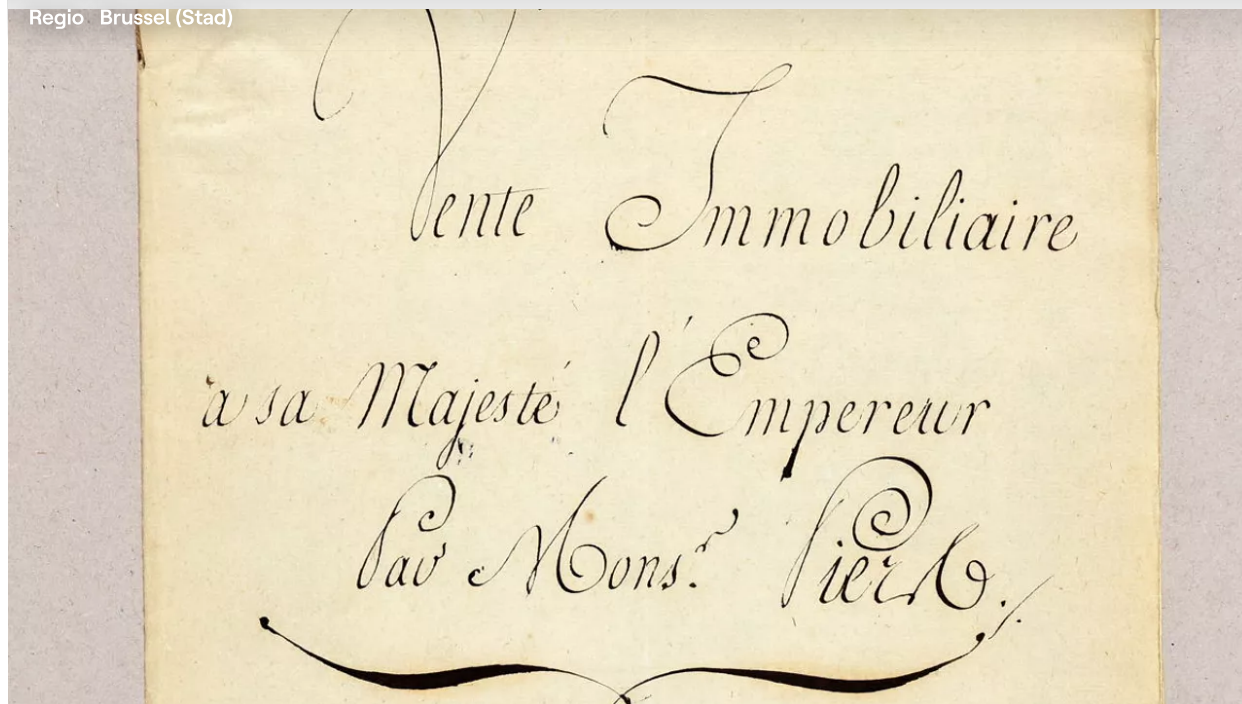 Regio Brussel (Stad)
Vente Immobiliaire
a sa Majesté l'Empereur
Par Mons.r